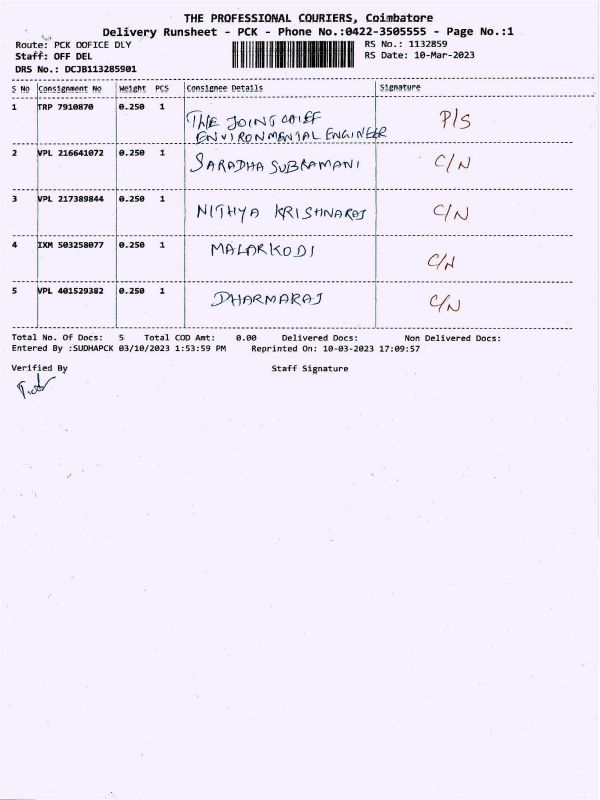 THE PROFESSIONAL COURIERS, Coimbatore
Delivery Runsheet - PCK - Phone No.:0422-3505555 - Page No.:1
Route: PCK OOFICE DLY
RS No.: 1132859
Staff: OFF DEL
RS Date: 10-Mar-2023
DRS No.: DCJB113285901
S No Consignment No Weight PCS Consignee Details Signature
1 TRP 7910870 0.250 1 THE JOING CHIEF P/S
ENVIRONMENTAL ENGINEER
2 VPL 216641072 0.250 1 SARADHA SUBRAMANI C/N
3 VPL 217389844 0.250 1 NITHYA KRISHNARAJ C/N
4 IXM 503258077 0.250 1 MALARKODI C/N
5 VPL 401529382 0.250 1 DHARMARAJ C/N
Total No. Of Docs: 5 Total COD Amt: 0.00 Delivered Docs: Non Delivered Docs:
Entered By :SUDHAPCK 03/10/2023 1:53:59 PM Reprinted On: 10-03-2023 17:09:57
Verified By Staff Signature